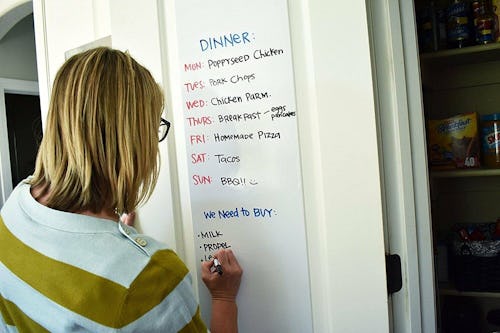 DINNER:
MON: Poppyseed Chicken
TUES: Pork Chops
WED: Chicken Parm.
THURS: Breakfast - eggs pancakes
FRI: Homemade Pizza
SAT: Tacos
SUN: BBQ!!
We Need to Buy:
• MILK
• PROPEL
40